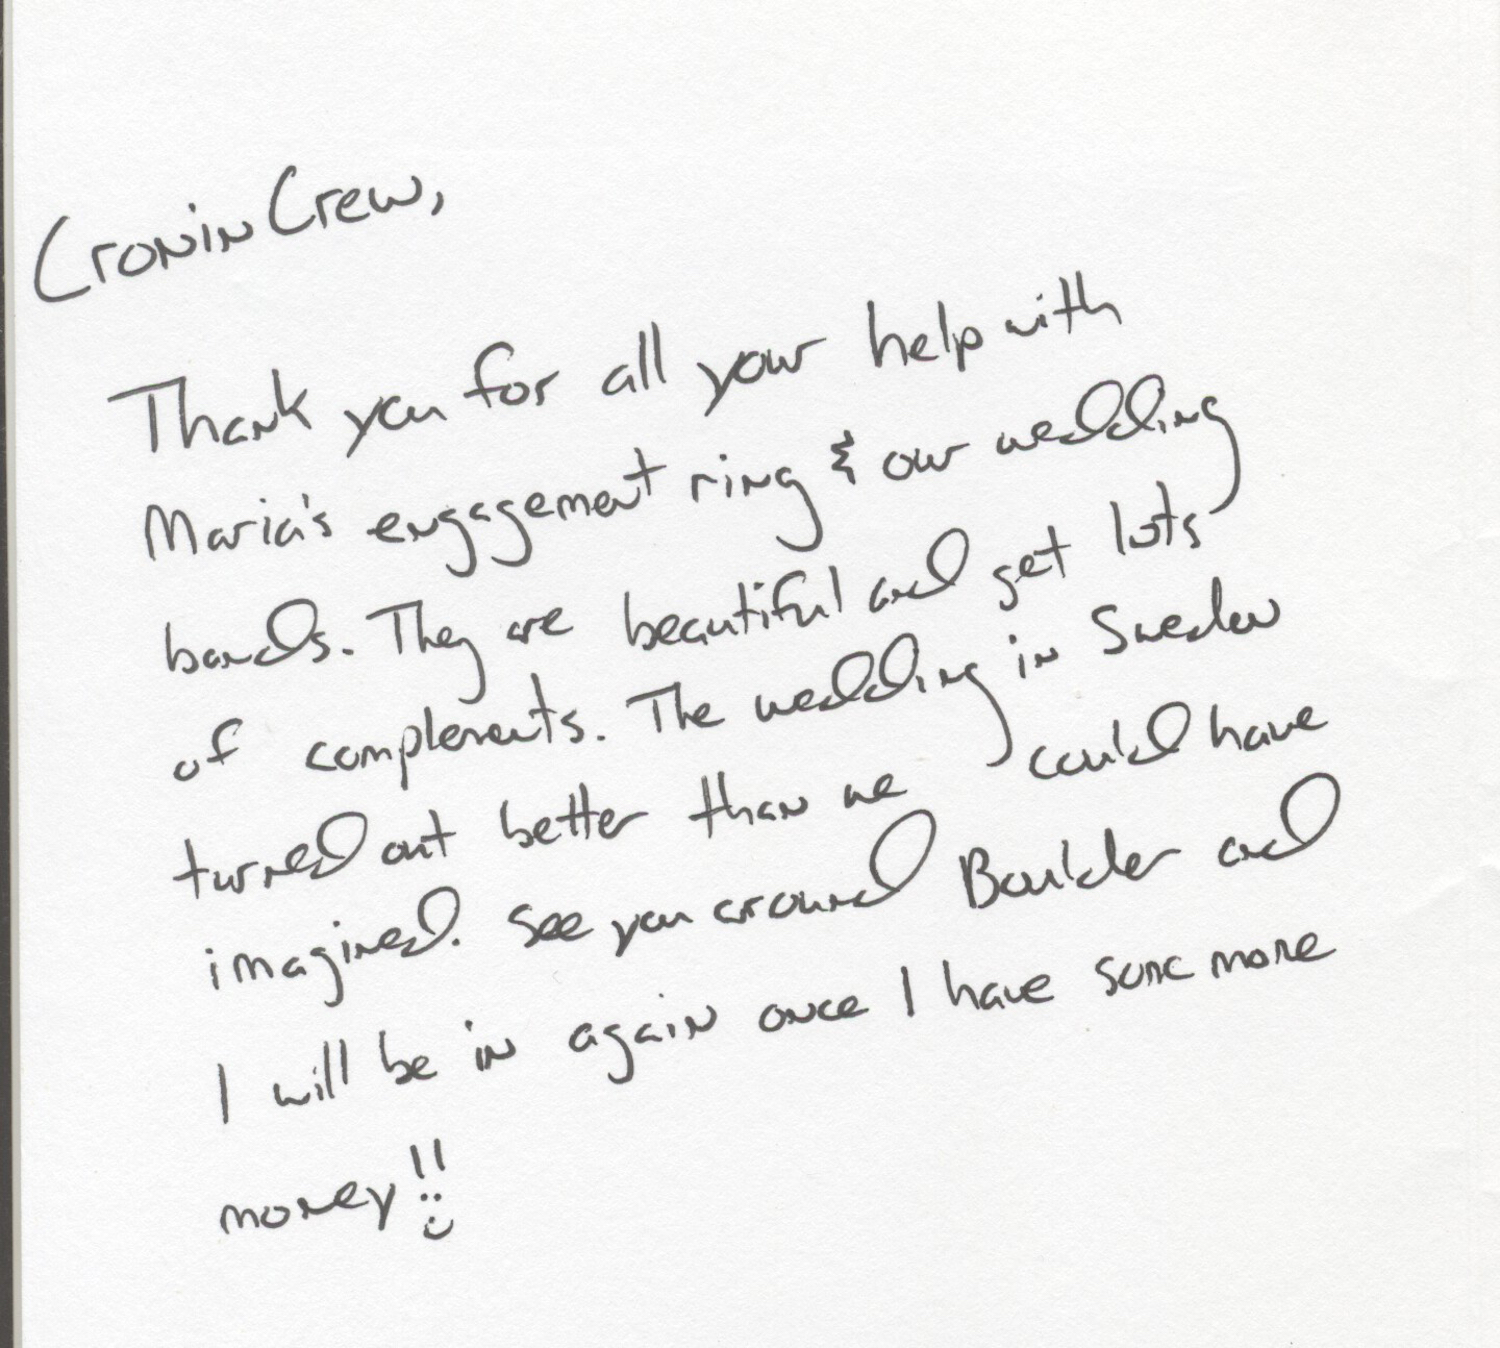 Cronin Crew,
Thank you for all your help with
Maria's engagement ring & our wedding
bands. They are beautiful and get lots
of complements. The wedding in Sweden
turned out better than we could have
imagined. See you around Boulder and
I will be in again once I have some more
money!! :)